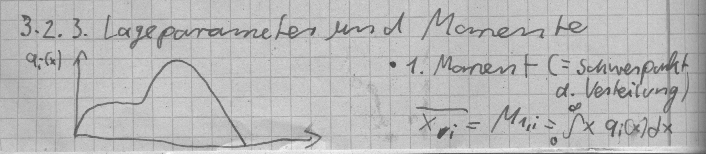 3.2.3. Lageparameter und Momente
qᵢ(x)
• 1. Moment (= Schwerpunkt
d. Verteilung)
x̅ᵣ,ᵢ = M₁,ᵢ = ∫₀^∞ x qᵢ(x) dx